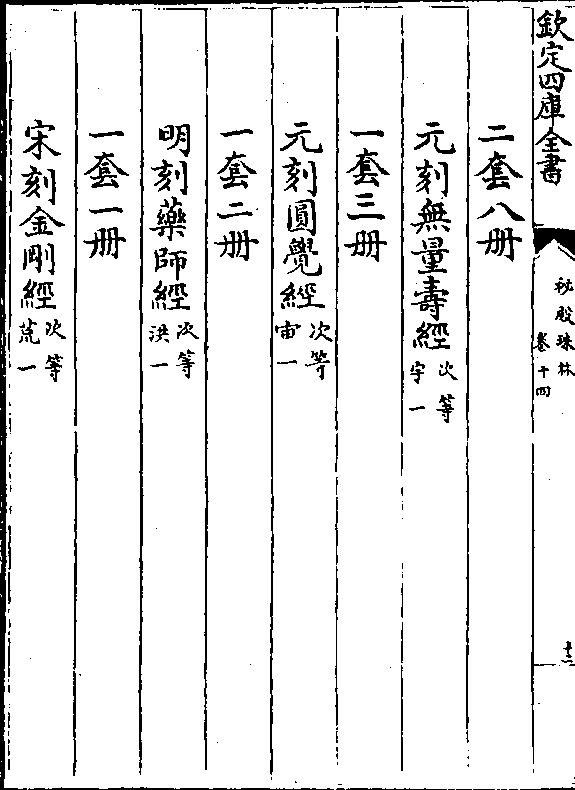 欽定四庫全書
秘殿珠林
卷十四
十二
二套八册
元刻無量壽經次等
宇一
一套三册
元刻圓覺經次等
宙一
一套二册
明刻藥師經次等
洪一
一套一册
宋刻金剛經次等
荒一